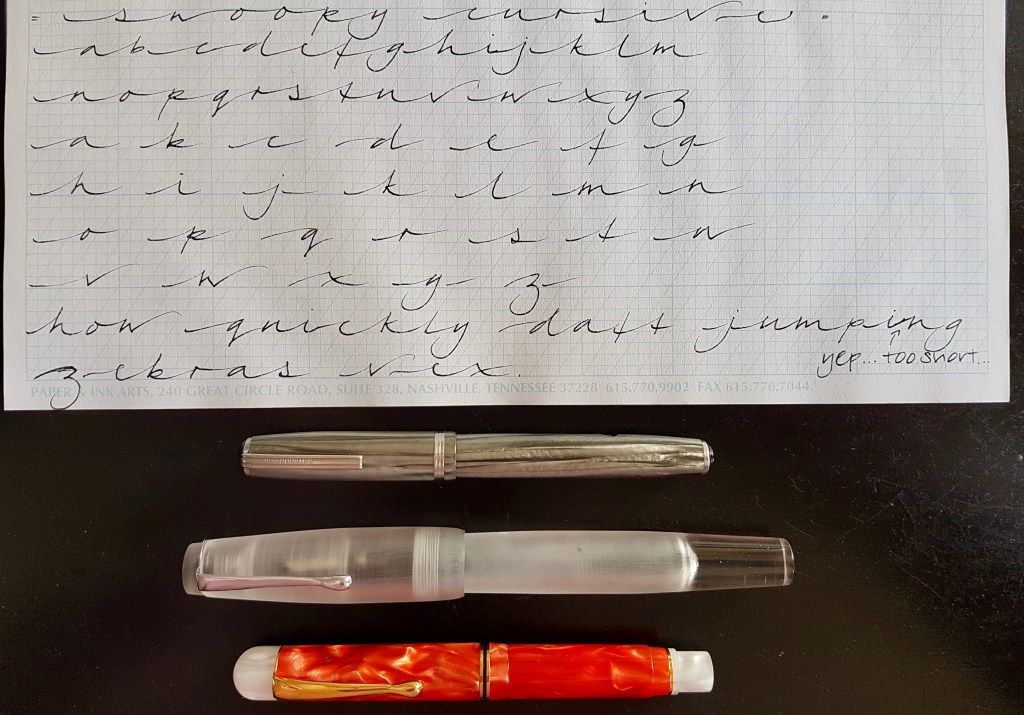 = snoopy cursive.
abcdefghijklm
nopqrstuvwxyz
a b c d e f g
h i j k l m n
o p q r s t u
v w x y z
how quickly daft jumping
yep... too short...
zebras vex.
PAPER & INK ARTS, 240 GREAT CIRCLE ROAD, SUITE 328, NASHVILLE, TENNESSEE 37228 615.770.9902 FAX 615.770.7044